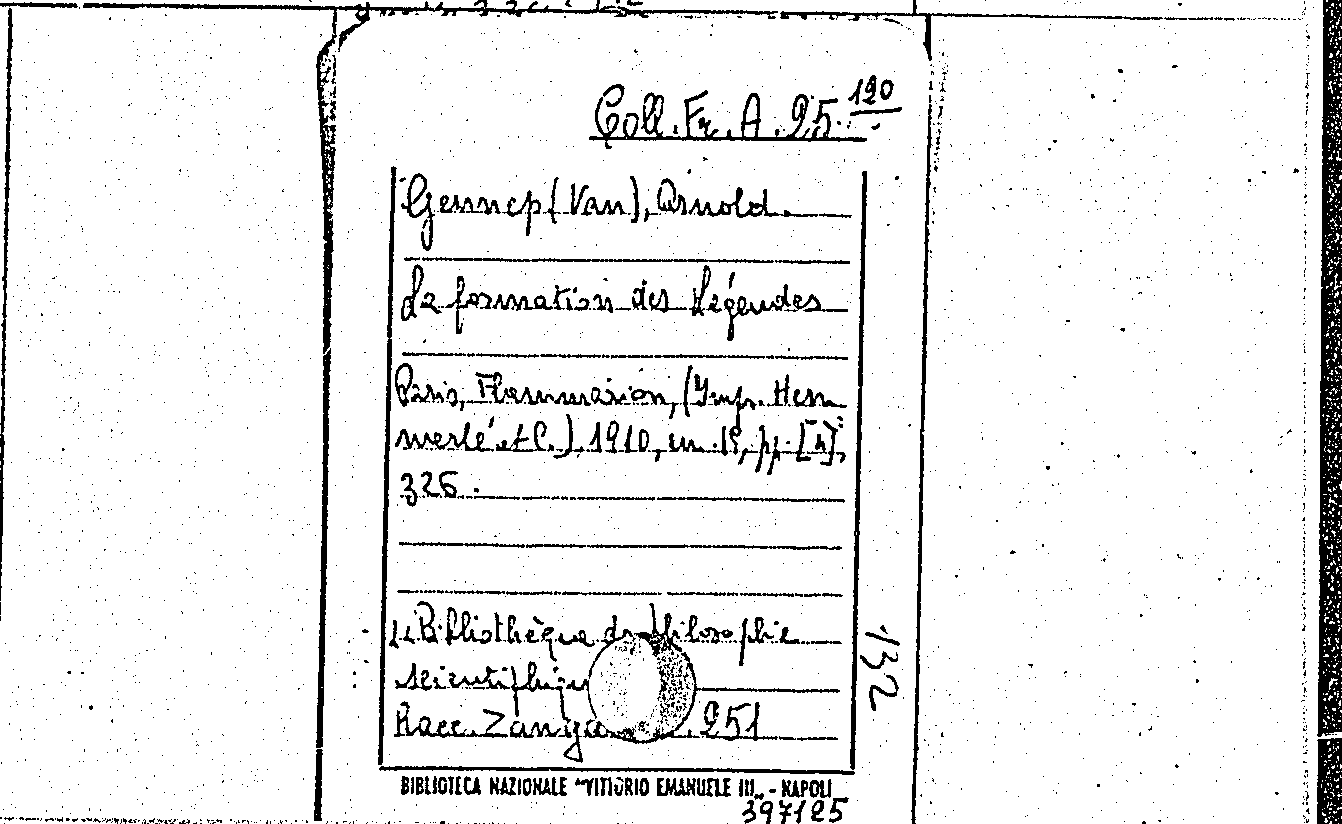 Coll. Fr. A. 25. 120
Gennep (Van), Arnold.
La formation des Légendes
Paris, Flammarion, (Imp. Hem
merlé et C.), 1910, in 18, pp. [4],
326.
Bibliothèque de Philosophie
scientifique
Racc. 251
132
BIBLIOTECA NAZIONALE "VITTORIO EMANUELE III„ - NAPOLI
397125